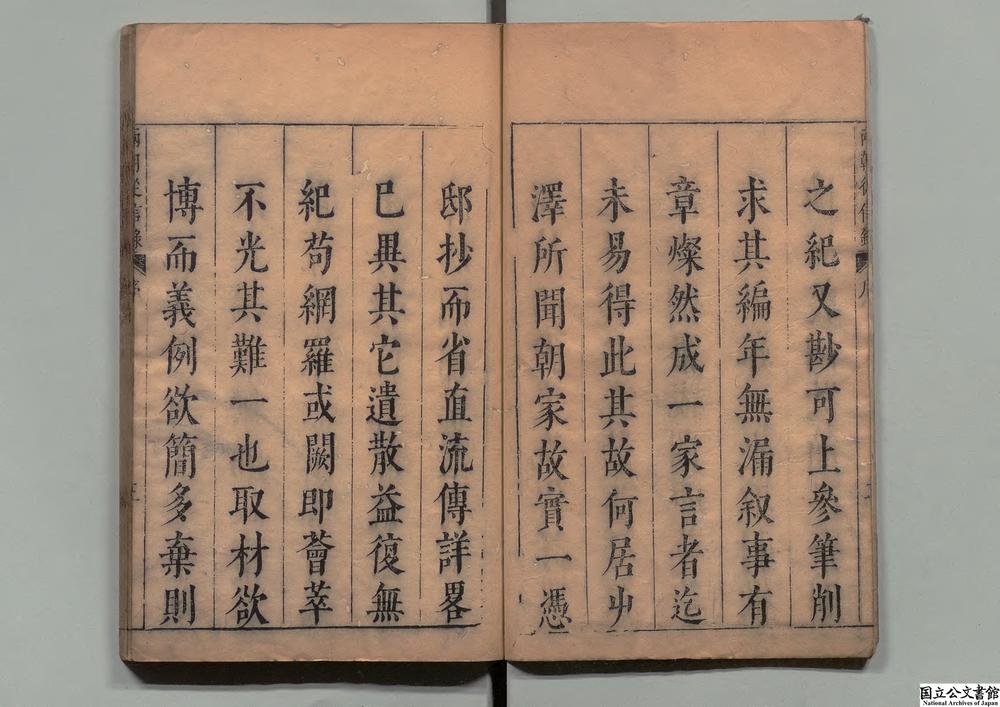 之紀又尠可上參筆削
求其編年無漏叙事有
章燦然成一家言者迄
未易得此其故何居山
澤所聞朝家故實一憑
邸抄而省直流傳詳畧
已異其它遺散益復無
紀茍網羅或闕即薈萃
不光其難一也取材欲
博而義例欲簡多棄則
国立公文書館
National Archives of Japan